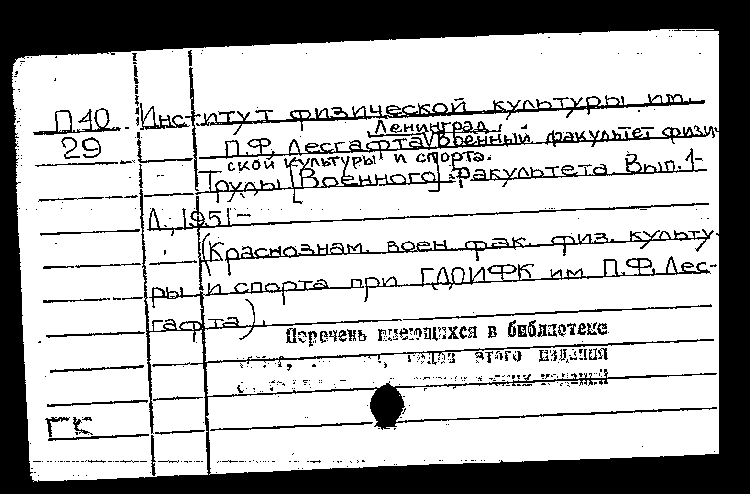 П40 Институт физической культуры им.
Ленинград.
29 П.Ф. Лесгафта Военный факультет физи-
ской культуры и спорта.
Труды [Военного] факультета Вып.1-
Л., 1951-
(Краснознам. воен. фак. физ. культу-
ры и спорта при ГДОИФК им. П.Ф. Лес-
гафта).
Перечень имеющихся в библиотеке
годов этого издания
изданий
ГК